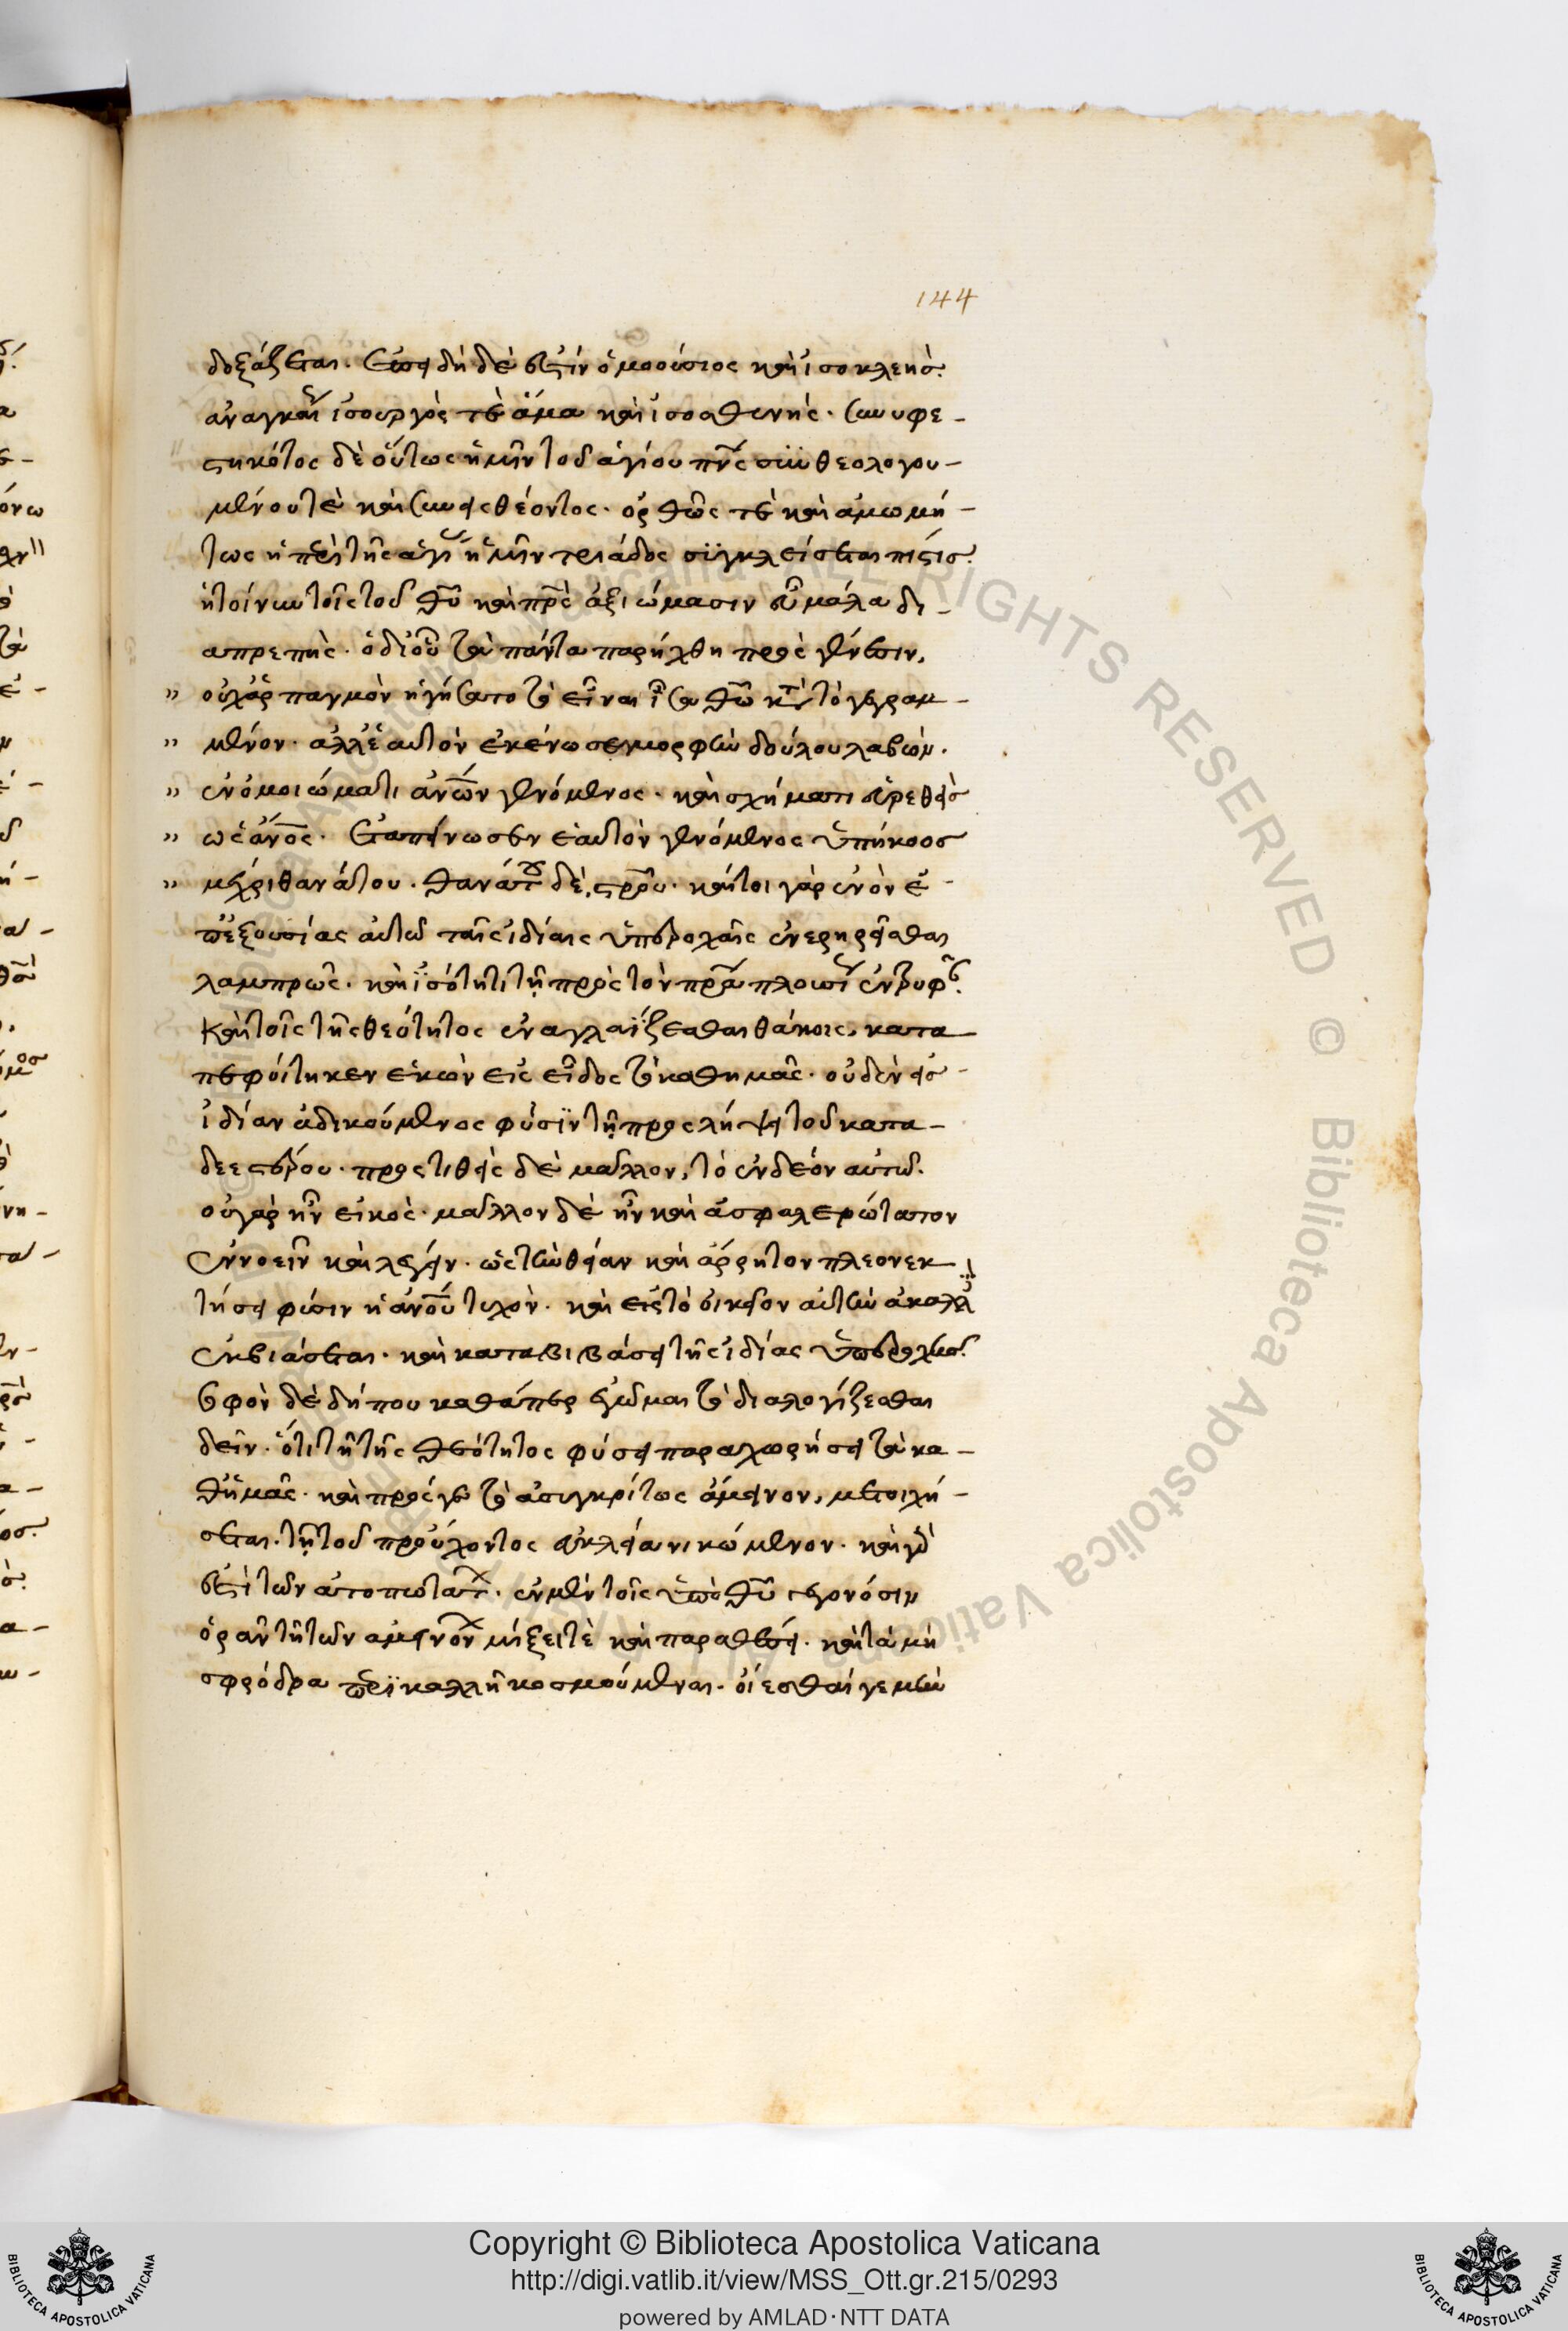 144
δοξάζεται. ἐπειδὴ δέ ἐστιν ὁμοούσιος καὶ ἰσοκλεὴς.
ἀναγκαῖον ἰσουργὸς τὲ ἅμα καὶ ἰσοσθενής. συνυφε-
στηκότος δὲ οὕτως ἡμῖν τοῦ ἁγίου πνς συνθεολογου-
μένου τὲ καὶ συνεισθέοντος. ὀρθῶς τὲ καὶ ἀμωμή-
τως ἡ περὶ τῆς ἁγίας ἡμῖν τριάδος συγκλείεται πίστις.
ἡ τοίνυν τοῖς τοῦ θυ καὶ πρς ἀξιώμασιν εὖ μάλα δι-
απρεπὴς. ὁ δι οὗ τὰ πάντα παρήχθη πρὸς γένεσιν,
" οὐχ ἁρπαγμὸν ἡγήσατο τὸ εἶναι ἴσα θῶ κατὰ τὸ γεγραμ-
" μένον. ἀλλ ἑαυτὸν ἐκένωσε μορφὴν δούλου λαβών.
" ἐν ὁμοιώματι ἀνων γενόμενος. καὶ σχήματι εὑρεθεὶς
" ὡς ἀνος. ἐταπείνωσεν ἑαυτὸν γενόμενος ὑπήκοος
" μέχρι θανάτου. θανάτου δὲ, στρου. καίτοι γὰρ ἐνὸν ἐ-
π ἐξουσίας αὐτῶ ταῖς ἰδίαις ὑπεροχαῖς ἐνερηρεῖσθαι
λαμπρῶς. καὶ ἰσότητι τῆ πρὸς τὸν πρα πλουσίως ἐντρυφᾶν.
καὶ τοῖς τῆς θεότητος ἐναγλαΐζεσθαι θάκοις, κατα
πεφοίτηκεν ἑκὼν εἰς εἶδος τὸ καθ ημᾶς. οὐδὲν εἰς
ἰδίαν ἀδικούμενος φύσιν τῆ προσλήψει τοῦ κατα-
δεεστέρου. προστιθεὶς δὲ μᾶλλον, τὸ ἐνδεὸν αὐτῶ.
οὐ γὰρ ἦν εἰκὸς. μᾶλλον δὲ ἦν καὶ ἀσφαλερώτατον
ἐννοεῖν καὶ λέγειν. ὡς τὴν θείαν καὶ ἄρρητον πλεονεκ
τήσει φύσιν ἡ ἀνου τυχὸν. καὶ εἰς τὸ οἰκεῖον αὐτὴν ἀκαλλὲς
ἐκβιάσεται. καὶ καταβιβάσει τῆς ἰδίας ὑπεροχῆς.
σοφὸν δὲ δήπου καθάπερ ἐγῶμαι τὸ διαλογίζεσθαι
δεῖν. ὅτι τῆ τῆς θεότητος φύσει παραχωρήσει τὰ κα-
θ ἡμᾶς. καὶ πρός γε τὸ ἀσυγκρίτως ἄμεινον, μετοιχή-
σεται. τῆ τοῦ προὔχοντος εὐκλεία νικώμενον. καὶ γάρ
ἐστὶ τῶν ἀτοπωτάτων. ἐν μὲν τοῖς ὑπὸ θυ γεγονόσιν
ὁρᾶν τῆ τῶν ἀμεινόνων μίξει τὲ καὶ παραθέσει. καὶ τὰ μὴ
σφόδρα περικαλλῆ κοσμούμενα. οἴεσθαί γε μὴν
Copyright © Biblioteca Apostolica Vaticana
http://digi.vatlib.it/view/MSS_Ott.gr.215/0293
powered by AMLAD·NTT DATA